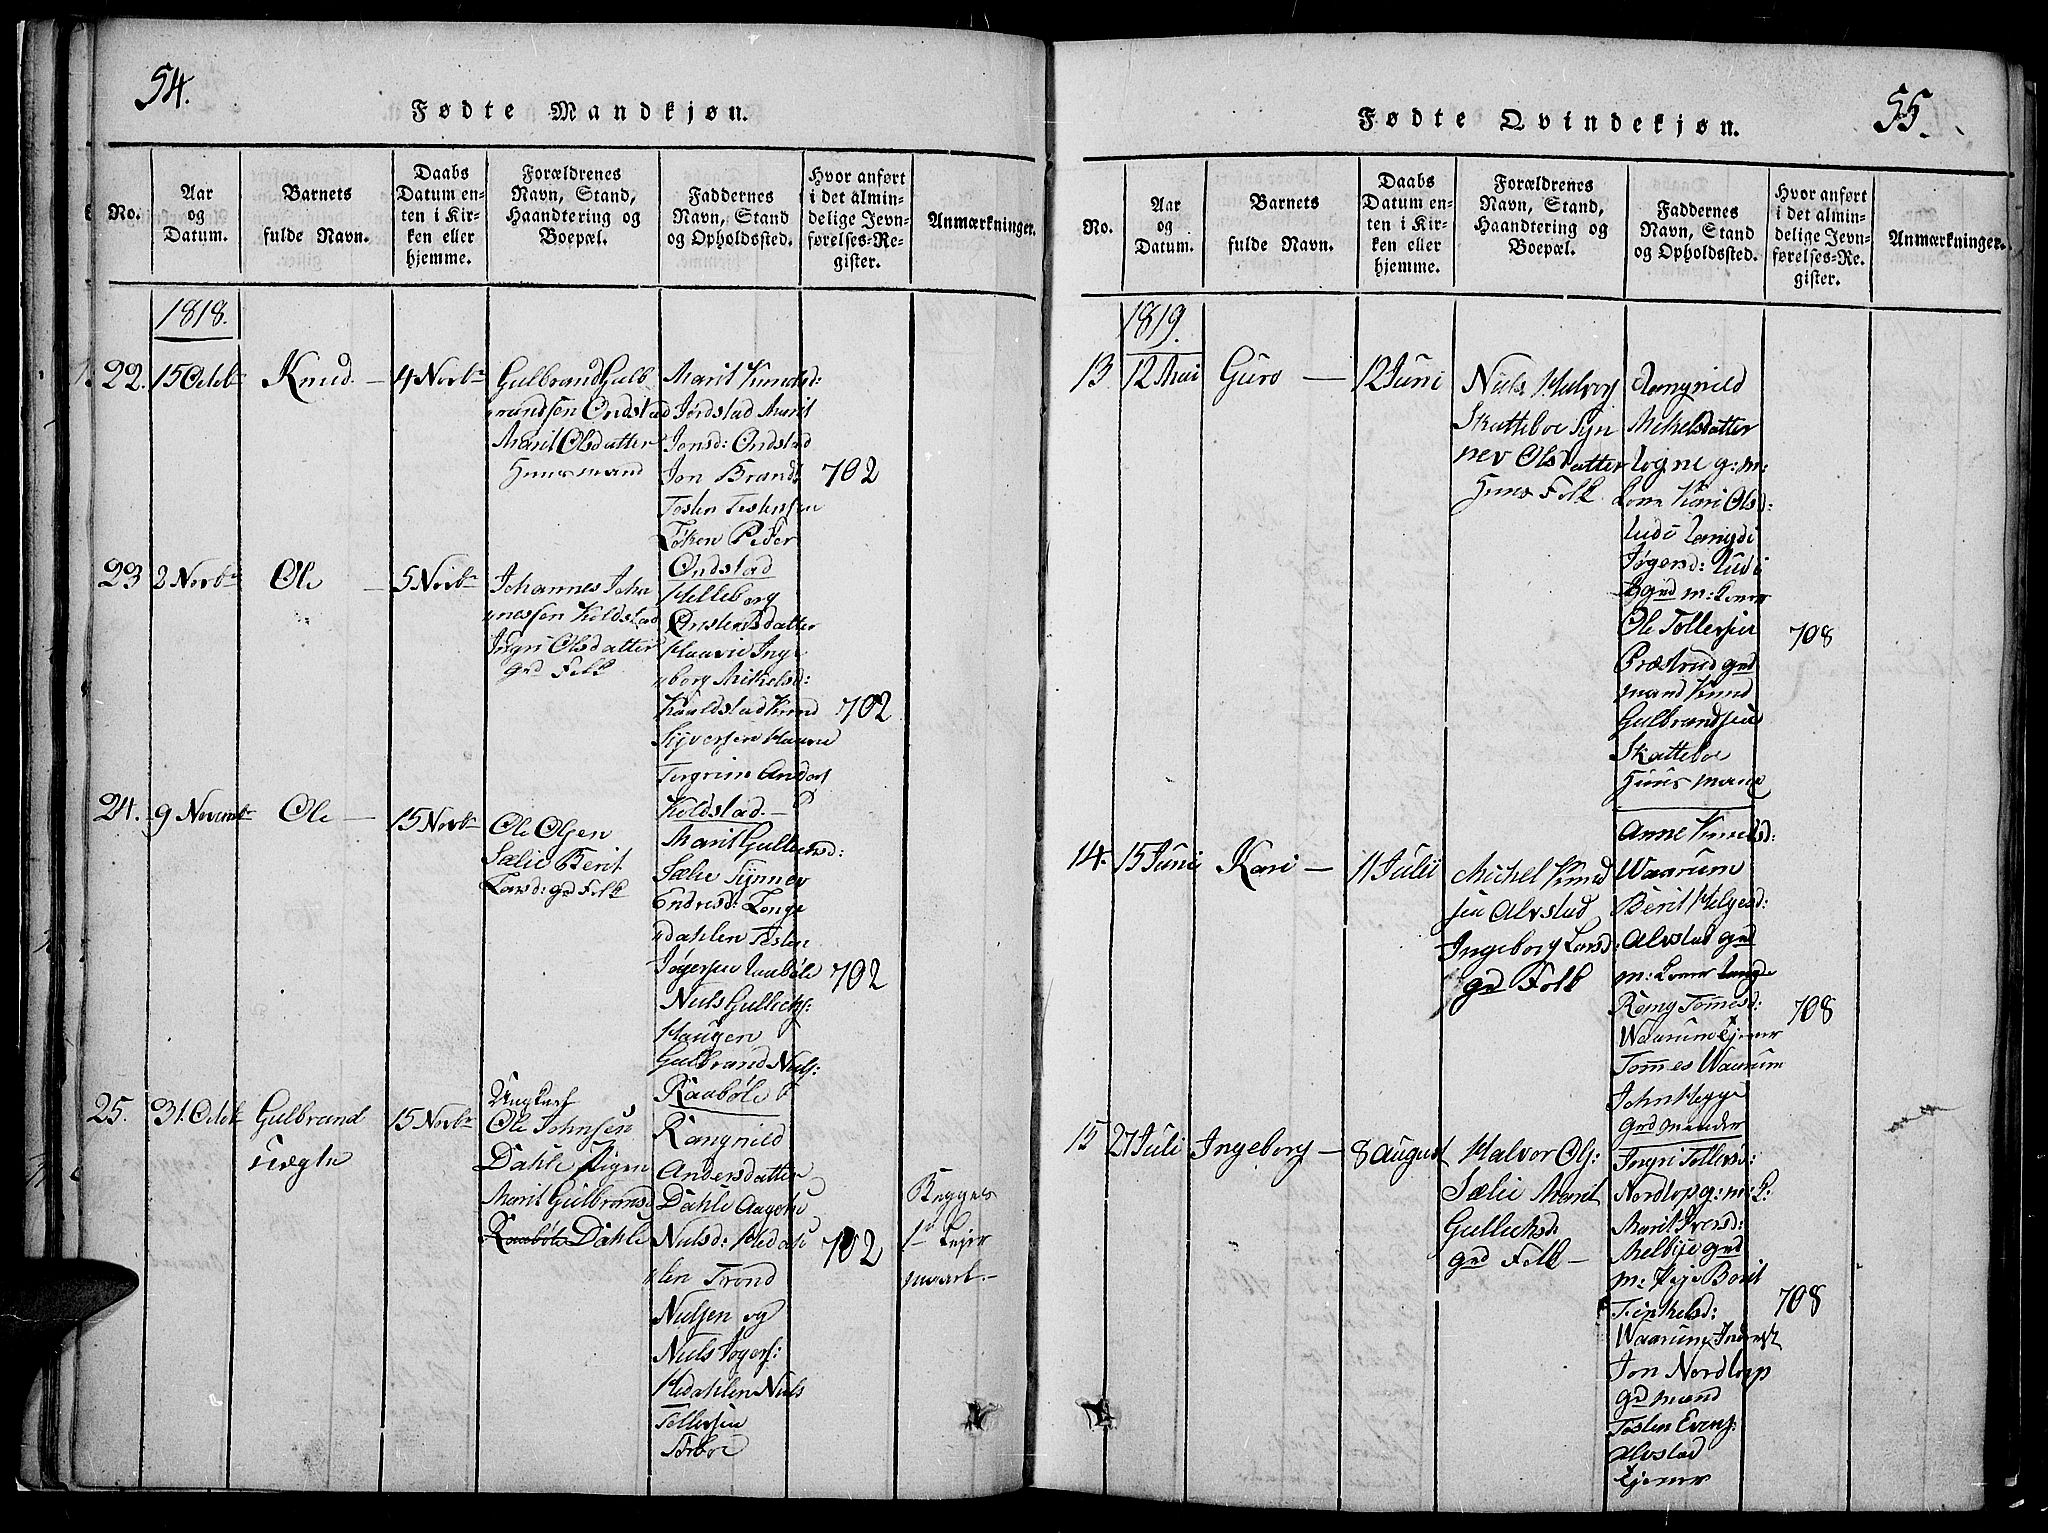 54.
Fødte Mandkjøn.
No.
Aar
og
Datum.
Barnets
fulde Navn.
Daabs
Datum en-
ten i Kir-
ken eller
hjemme.
Forældrenes
Navn, Stand,
Haandtering og
Boepæl.
Faddernes
Navn, Stand
og Opholdssted.
Hvor anført
i det almin-
delige Jevn-
førelses-Re-
gister.
Anmærkninger.
1818.
22.
15 Octob
Knud
4 Novbr
Gulbrand Gulb
randsen Ondstad
Marit Olsdatter
Huusmand
Marit Knuds:
Jørdstad Marit
Jonsd: Ondstad
Jon Brands
Tosten Tostensen
Løken Peder
Ondstad
702
23
2 Novbr
Ole
5 Novbr
Johannes Joha
nnessen Koldstad
Ingri Olsdatter
grd Folk
Helleborg
Onstensdatter
Haavie Inge
borg Mikelsd:
Kaaldstad Knud
Syversen Haavie
Torgrim Anders
Koldstad.
702
24.
9 Novembr
Ole
15 Novbr
Ole Olsen
Sælie Berit
Larsd: grd Folk
Marit Gulliksd:
Sælie Synnev
Endresd: Lange
dahlen Tosten
Jøgersen Raabøle
Niels Gullichs:
Haugen
Gulbrand Niels:
Raabøle
702
25.
31. Octob
Gulbrand
Uægte
15 Novbr
Ungkarl
Ole Johnsen
Dahle Pigen
Marit Gulbransd
Raabøle Dahle
Rangnild
Andersdatter
Dahle Aagothe
Nielsd: Hedah
len Trond
Nielsen og
Niels Jøgers:
Hedahlen Niels
Tollersen
702
Begges
1te Lejer
maal.
55.
Fødte Qvindekjøn.
No.
Aar
og
Datum.
Barnets
fulde Navn.
Daabs
Datum en-
ten i Kir-
ken eller
hjemme.
Forældrenes
Navn, Stand,
Haandtering og
Boepæl.
Faddernes
Navn, Stand
og Opholdssted.
Hvor anført
i det almin-
delige Jevn-
førelses-Re-
gister.
Anmærkninger.
1819.
13
12 Mai
Guro
12 Juni
Niels Halvors
Skatteboe Syn
nev Olsdatter
Huus Folk
Rangnild
Mikelsdatter
Logne g: m:
Kone Kari Olsd:
Ludi
Jøgersd: Ludi
grd m: Koner
Ole Tollersen
Præstrud grd
mand Knud
Gulbrandsen
Skatteboe
Huus mand
708
14.
15 Juni
Kari
11 Julii
Michel Knud
sen Alvstad
Ingeborg Larsd:
grd Folk
Anne Knudsd:
Waarum
Berit Helgesd:
Alvstad grd
m: Koner
Rang Tommesd:
Waarum
Tommes Waarum
John Hegge
grd mænder
708
15
27 Juli
Ingeborg
8 August
Halvor Ols:
Sælie Marit
Gullichsd:
grd Folk
Ingri Tollevsd:
Nordlop g: m: K:
Marit Iversd:
Melbye grd
m: Pige Berit
Waarum
Jon Nordlorp
grd mand
Tosten Evens:
Alvstad
708